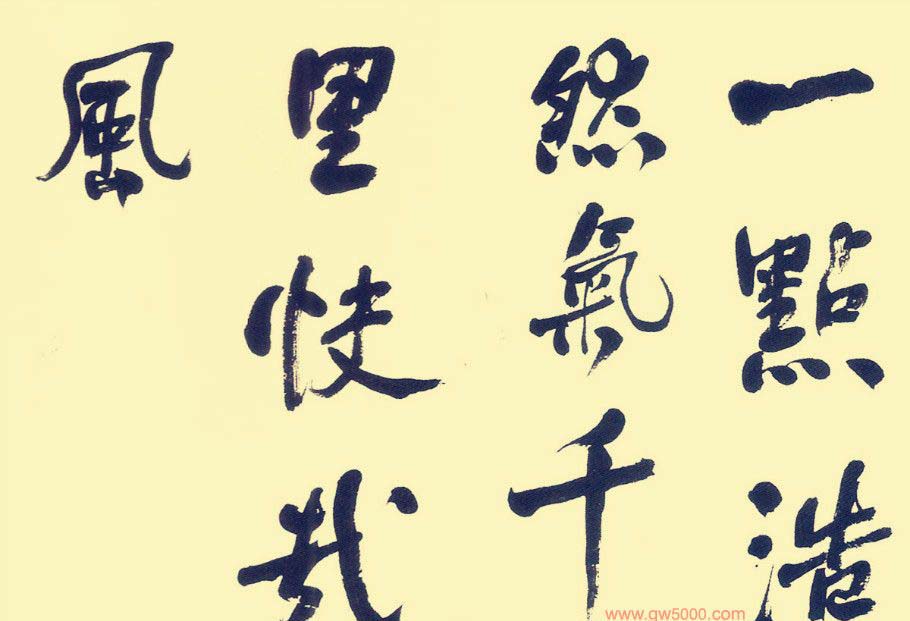 一點浩
然氣千
里快哉
風
www.qw5000.com